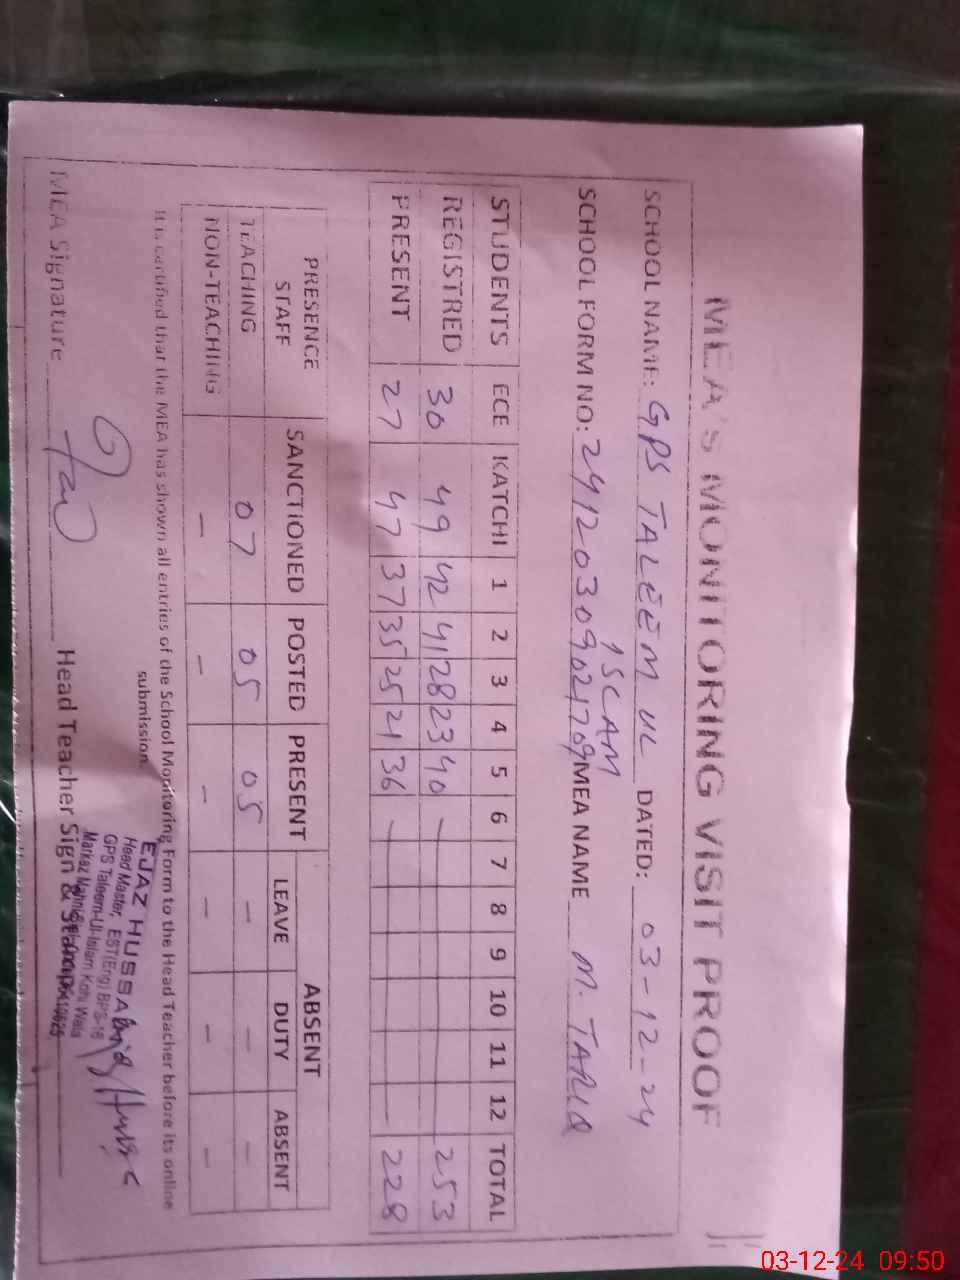 MEA'S MONITORING VISIT PROOF
SCHOOL NAME: GPS TALEEM UL DATED: 03-12-24
ISLAM
SCHOOL FORM NO: MEA NAME M. TARIQ
STUDENTS ECE KATCHI 1 2 3 4 5 6 7 8 9 10 11 12 TOTAL
REGISTRED 30 49 42 41 28 23 40 — 253
PRESENT 27 47 37 35 25 21 36 — 228
PRESENCE STAFF SANCTIONED POSTED PRESENT ABSENT
LEAVE DUTY ABSENT
TEACHING 07 05 05 - - -
NON-TEACHING - - - - - -
It is certified that the MEA has shown all entries of the School Monitoring Form to the Head Teacher before its online
submission.
MEA Signature Head Teacher Sign & Stamp
EJAZ HUSSAIN
Head Master, EST(Eng) BPS-16
GPS Taleem-Ul-Islam Kohi Wala
Markaz
03-12-24 09:50